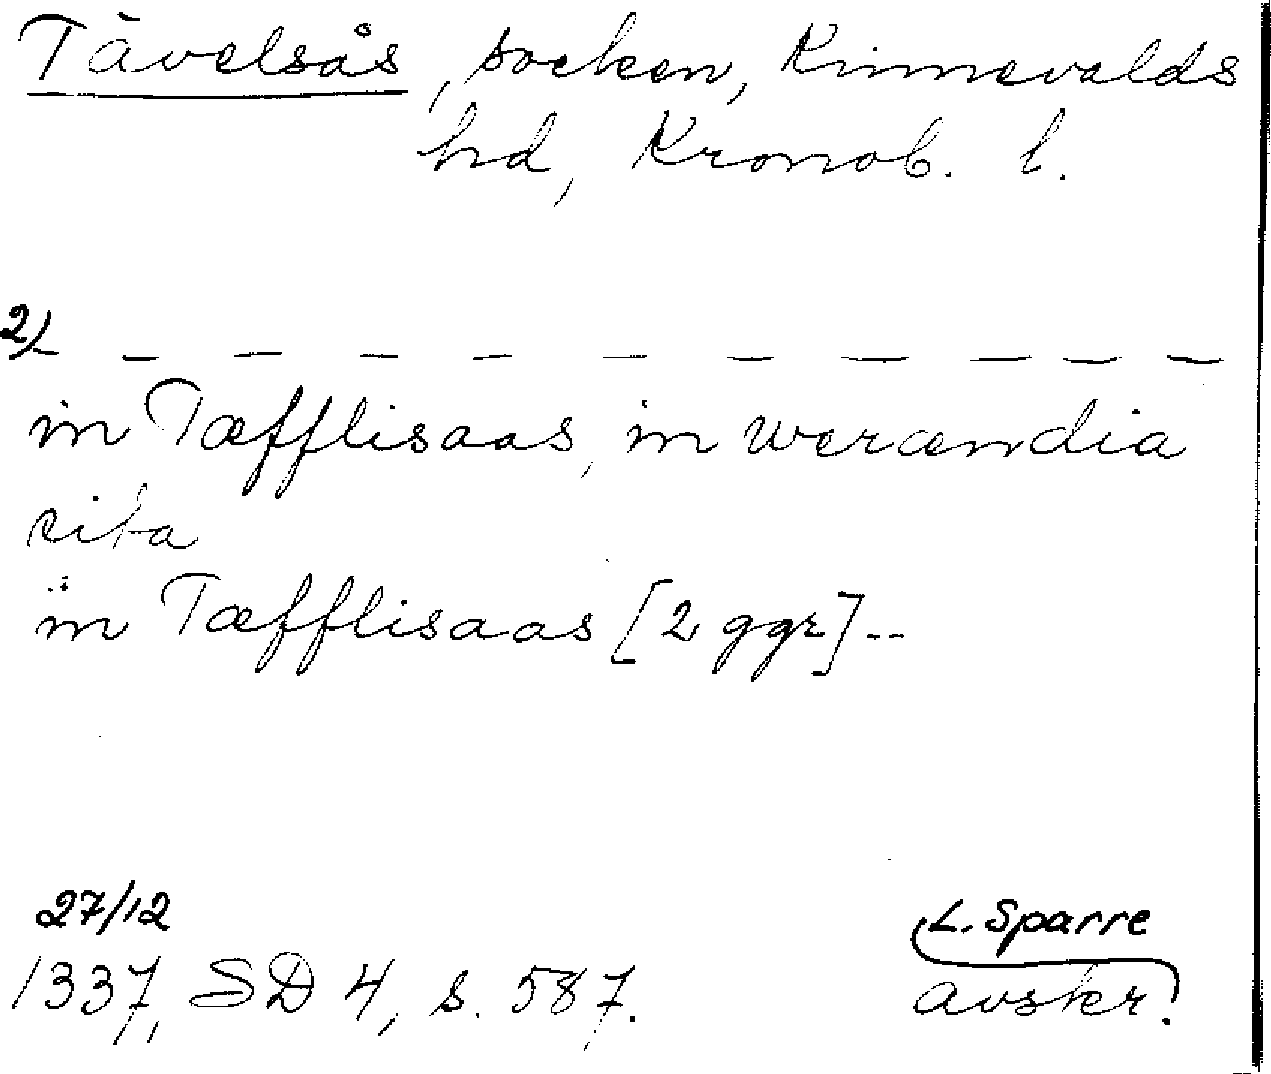 Tävelsås, socken, Kinnevalds
hd, Kronob. l.
2/ _ _ _ _ _ _ _ _ _ _
in Tæfflisaas, in Werændia
sita
in Tæfflisaas [2 ggr] --
27/12
1337, SD 4, s. 587.
L. Sparre
avskr.